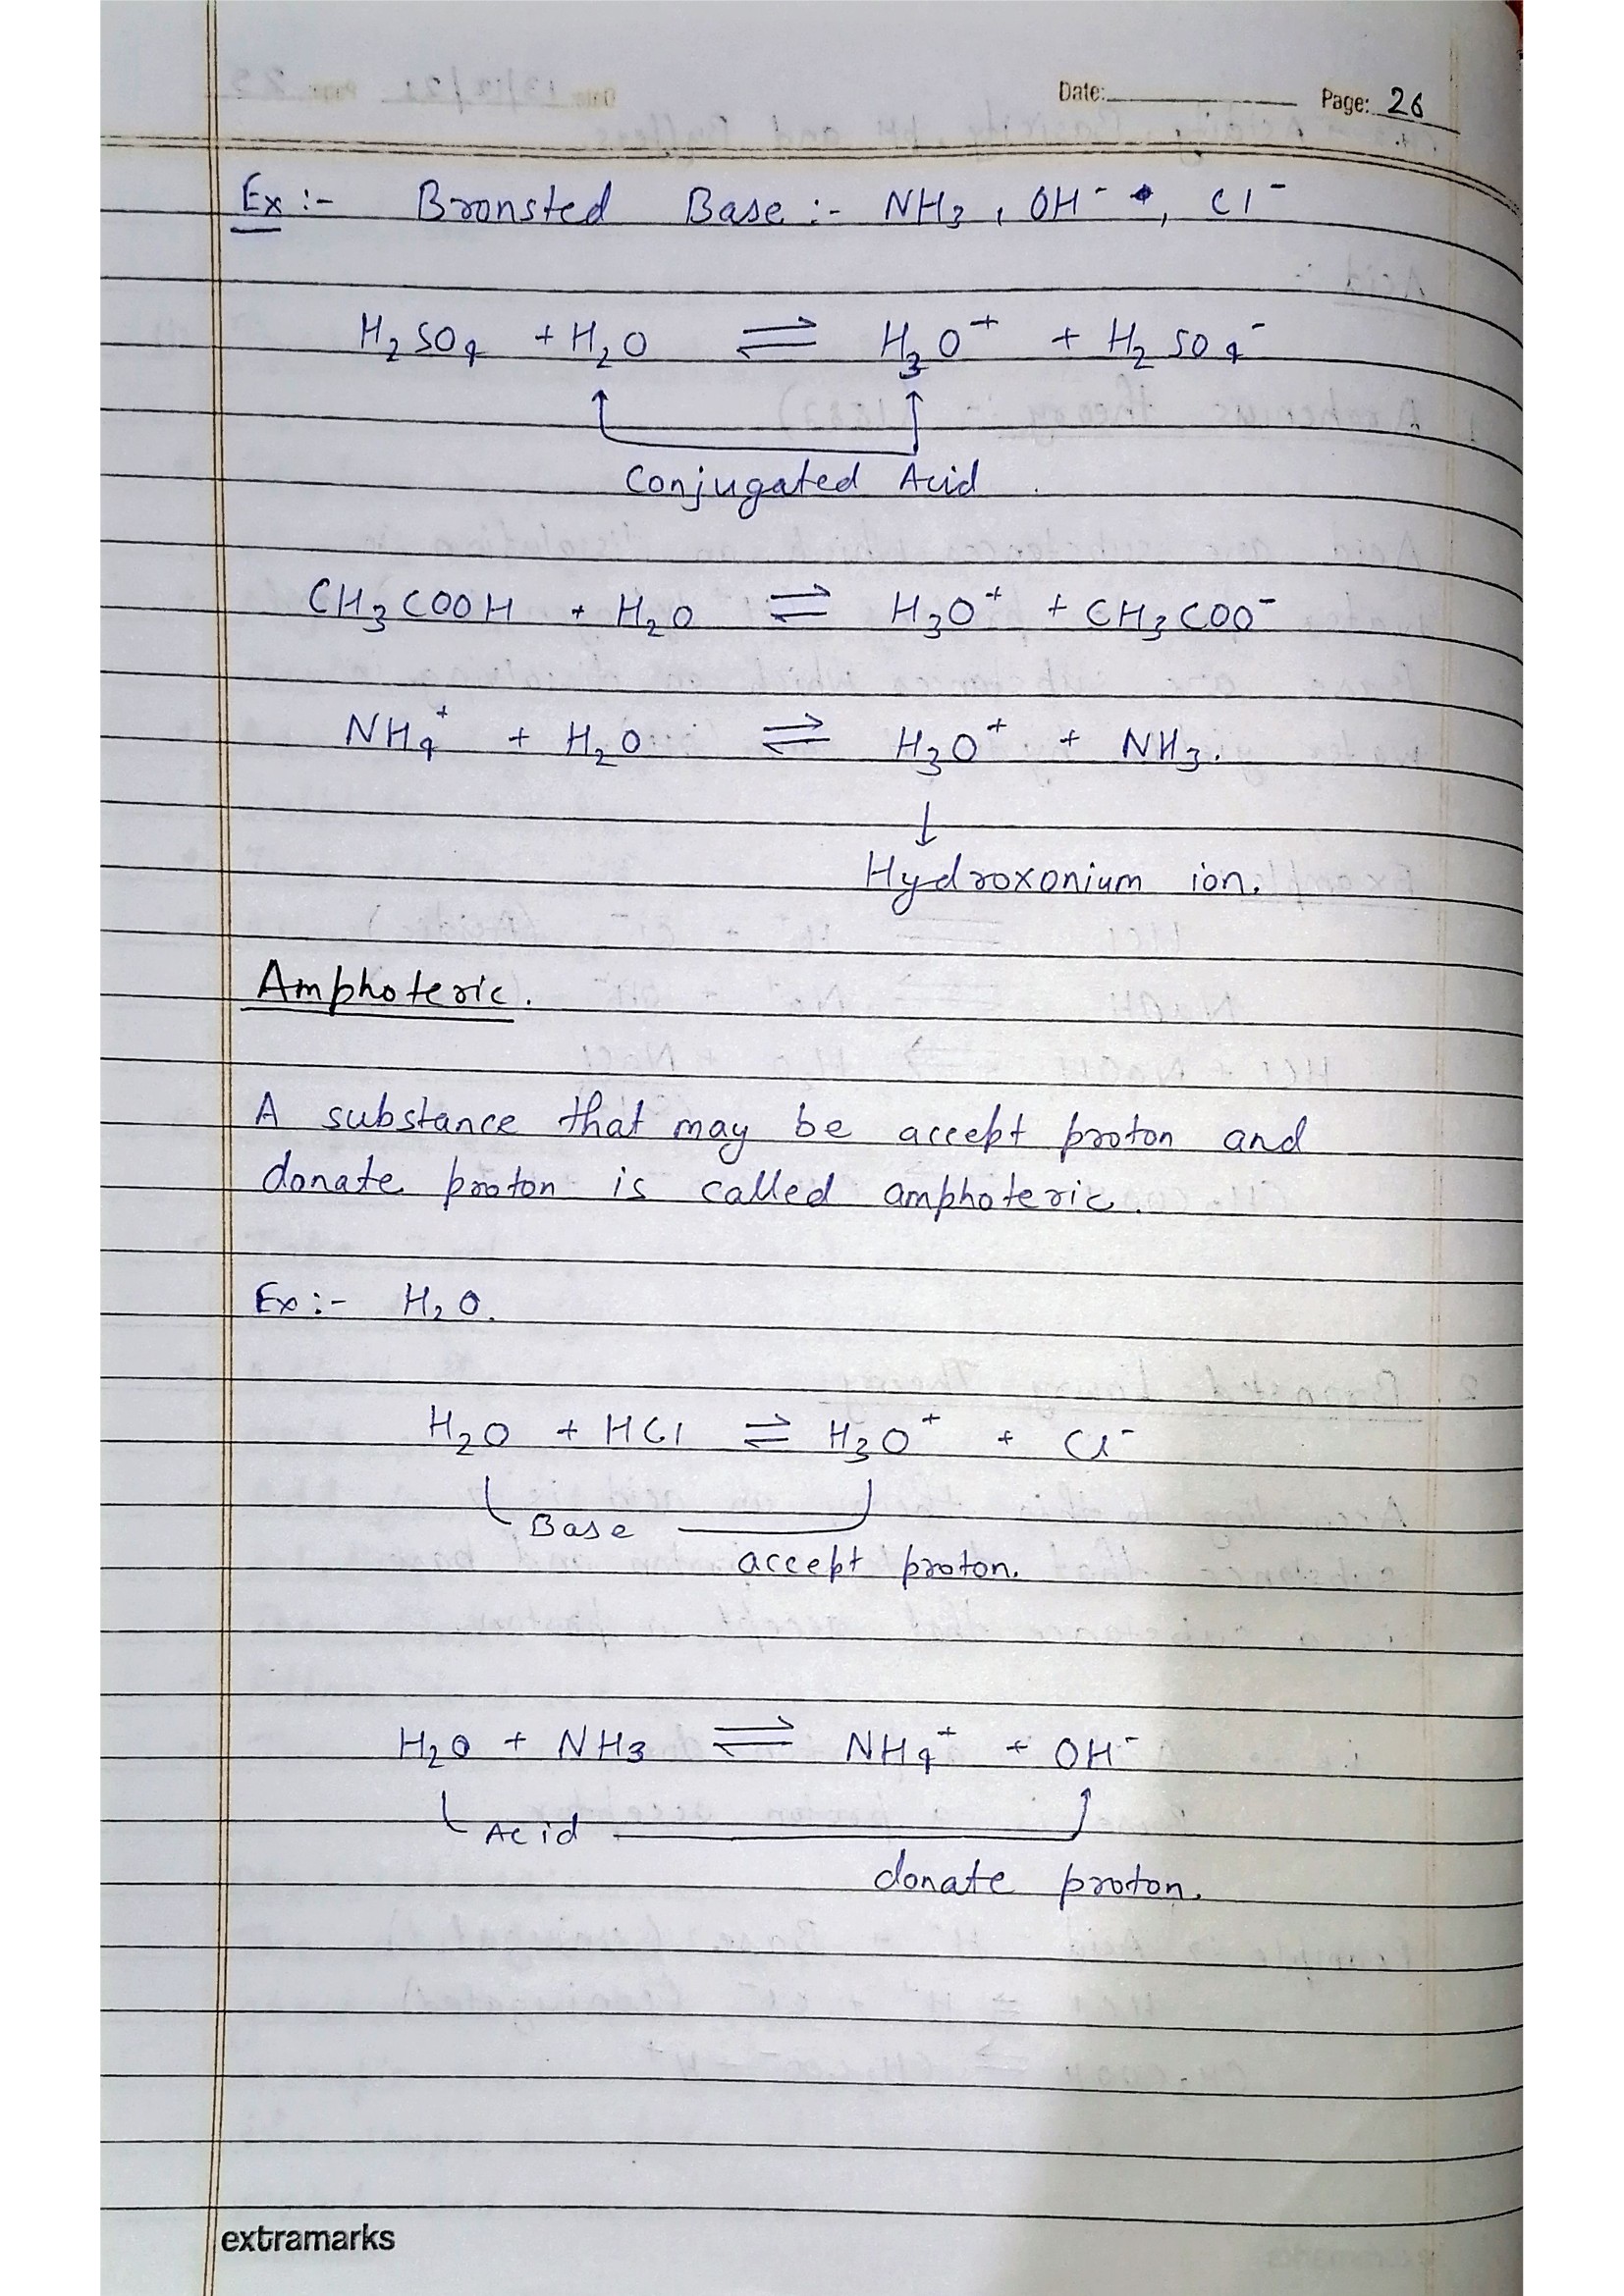 Date: Page: 26
Ex :- Bronsted Base :- NH3, OH⁻, Cl⁻
H₂SO₄ + H₂O ⇌ H₃O⁺ + H₂SO₄⁻
Conjugated Acid
CH₃COOH + H₂O ⇌ H₃O⁺ + CH₃COO⁻
NH₄⁺ + H₂O ⇌ H₃O⁺ + NH₃.
↓
Hydroxonium ion.
Amphoteric.
A substance that may be accept proton and
donate proton is called amphoteric.
Ex :- H₂O.
H₂O + HCl ⇌ H₃O⁺ + Cl⁻
Base
accept proton.
H₂O + NH₃ ⇌ NH₄⁺ + OH⁻
Acid
donate proton.
extramarks